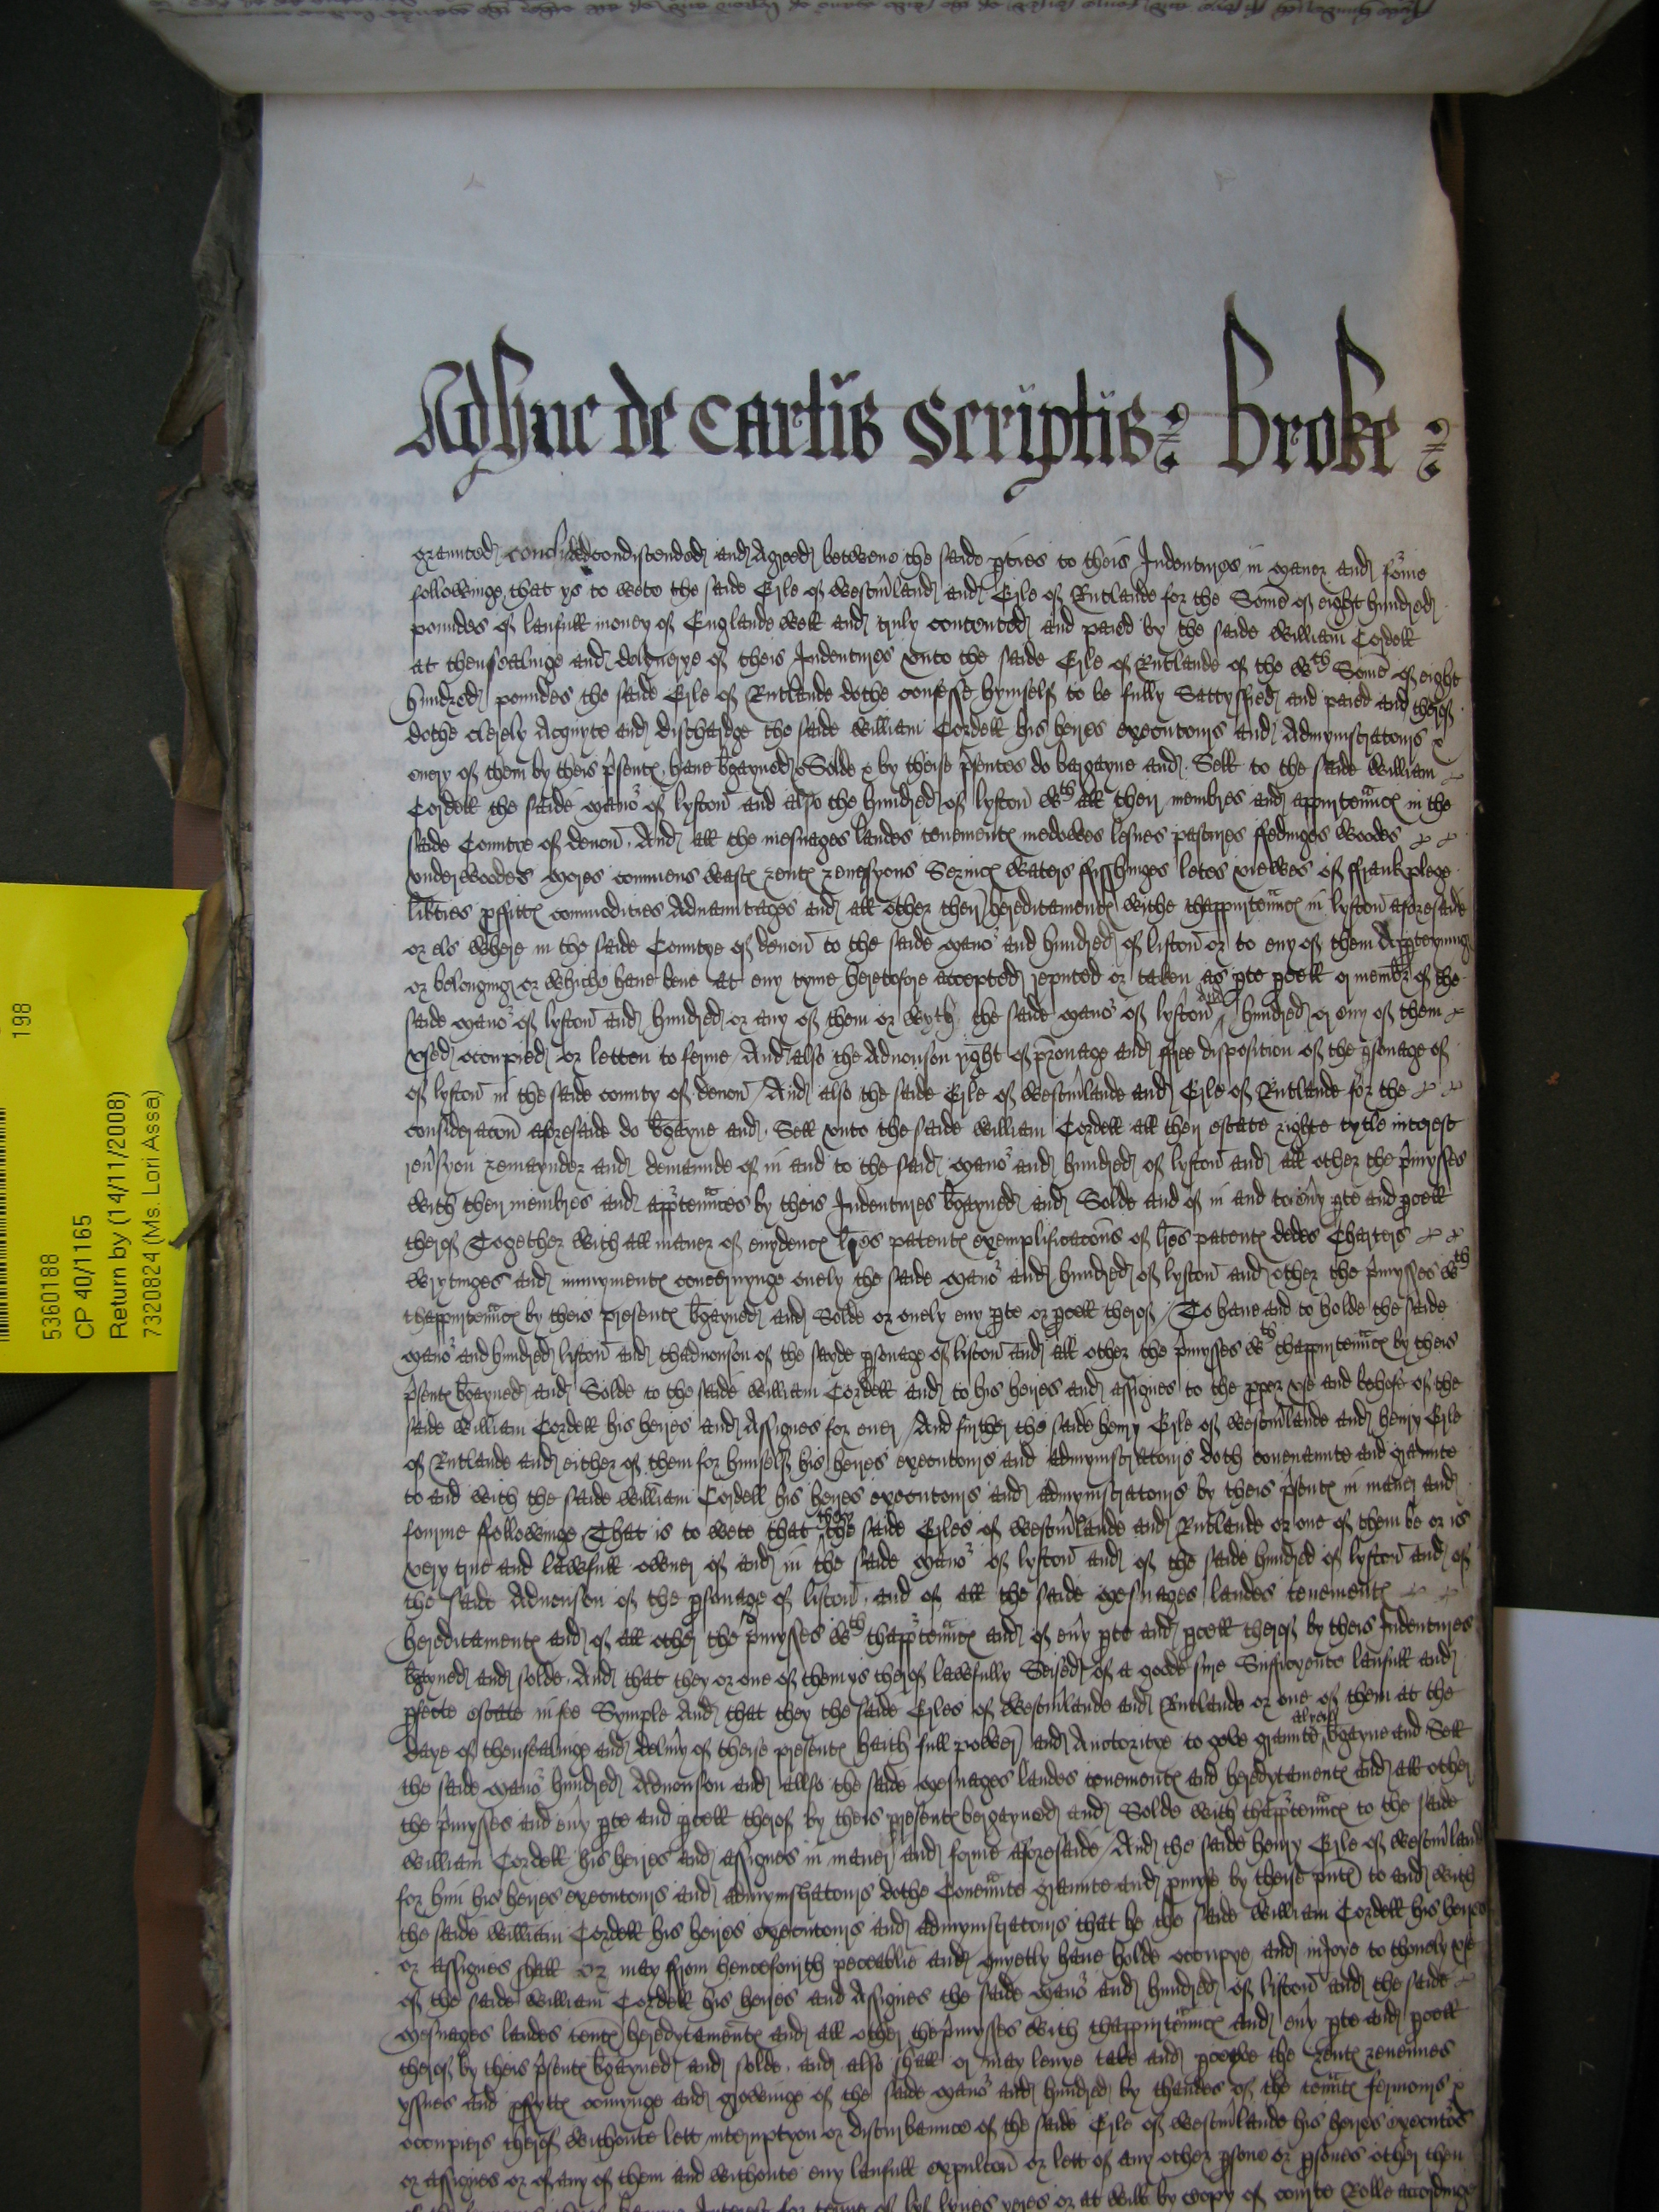 198
5360188
CP 40/1165
Return by (14/11/2008)
73208824 (Ms. Lori Assa)
Adhuc de Cartis Scriptis Broke
graunted concluded condiscended and Agreed betwene the saide pties to theis Indentures in maner and forme
followinge that ys to wete the saide Erle of westmland and Erle of Rutlande for the Some of eight hundred
poundes of laufull money of Englande well and truly contented and paied by the saide William Cordell
at thensealinge and delyuerye of theis Indentures vnto the saide Erle of Rutlande of the wth Some of eight
hundred poundes the saide Erle of Rutlande dothe confesse hymself to be fully Sattysfied and paied and therof
dothe clerely Acquyte and dischardge the saide William Cordell his heires executours and Admynistratours &
euery of them by theis psentes haue bgayned & Solde & by theise psentes do bargayne and Sell to the saide William
Cordell the saide mano of lyfton and also the hundred of lyfton wth all their membres and appurtennces in the
saide Countye of deuon And all the mesuages landes tenementes medowes lesues pastures ffedinges woodes
vnderwoodes mores commens wastes rentes reuersyons Seruices waters ffisshinges letes viewes of ffrankplege
libties pfittes commodities Aduauntages and all other their hereditamentes withe thappurtennces in lyfton aforesaide
or els where in the saide Countye of deuon to the saide mano and hundred of lifton or to eny of them Apperteyning
or belonging or whiche haue bene at eny tyme heretofore accepted reputed or taken as pte pcell or membr of the
saide mano of lyfton and hundred or any of them or wyth the saide mano of lyfton and hundred or eny of them
vsed occupied or letten to ferme And also the Aduouson right of pronage and ffree disposition of the psonage of
of lyfton in the saide county of deuon And also the saide Erle of westmlande and Erle of Rutlande for the
consideracon aforesaide do bgayne and Sell vnto the saide William Cordell all their estate righte tytle interest
reusyon remaynder and demaunde of in and to the said mano and hundred of lyfton and all other the pmysses
with their membres and apptennces by theis Indentures bgayned and Solde and of in and to euy pte and pcell
therof Together with all maner of euydences lres patentes exemplificacons of lres patentes dedes Charters
wrytinges and munymentes concernynge onely the saide mano and hundred of lyfton and other the pmysses wth
thappurtennces by theis presentes bgayned and Solde or onely eny pte or pcell therof To haue and to holde the saide
mano and hundred lyfton and thaduouson of the sayde psonage of lifton and all other the pmysses wth thappurtennces by theis
psentes bgayned and Solde to the saide William Cordell and to his heires and assignes to the pper vse and behofe of the
saide William Cordell his heires and Assignes for euer And further the saide henry Erle of westmlande and henry Erle
of Rutlande and either of them for himself his heires executours and admynistratours doth couenaunte and graunte
to and with the saide William Cordell his heires executours and admynistratours by theis psentes in maner and
fourme ffollowinge That is to wete that they the saide Erles of westmlande and Rutlande or one of them be or is
very true and lawfull owner of and in the saide mano of lyfton and of the saide hundred of lyfton and of
the saide Aduouson of the psonage of lifton and of all the saide mesuages landes tenementes
hereditamentes and of all other the pmysses wth thapptennces and of euy pte and pcell therof by theis Indentures
bgayned and solde And that they or one of them ys therof lawfully Seised of a goode sure Sufficyente laufull and
pfecte estate in fee Symple And that they the saide Erles of westmlande and Rutlande or one of them at the
daye of thensealinge and deliuy of theise presentes haith full power and Auctoritye to geve graunte alyen bgayne and Sell
the saide mano hundred Aduouson and allso the saide mesuages landes tenementes and heredytamentes and all other
the pmysses and euy pte and pcell therof by theis presentes bergayned and Solde with thapptennces to the saide
William Cordell his heires and assignes in maner and forme aforesaide And the saide henry Erle of westmland
for him his heires executours and admynistratours dothe Couennte graunte and pmyse by theise pntes to and with
the saide William Cordell his heires executours and admynistratours that he the saide William Cordell his heires
or assignes shall or may from hencefourth peceablie and quyetly haue holde occupye and inJoye to thonely vse
of the saide William Cordell his heires and Assignes the saide mano and hundred of lifton and the saide
mesuages landes tentes heredytamentes and all other the pmysses with thappurtennces and euy pte and pcell
therof by theis psentes bgayned and solde and also shall or may leuye take and pceyve the rentes reuenues
yssues and pfyttes comynge and growinge of the saide mano and hundred by thandes of the tenntes fermours &
occupiers therof withoute lett interuptyon or disturbaunce of the saide Erle of westmlande his heires executos
or assignes or of any of them and withoute eny laufull expulcon or lett of any other psone or psones other then